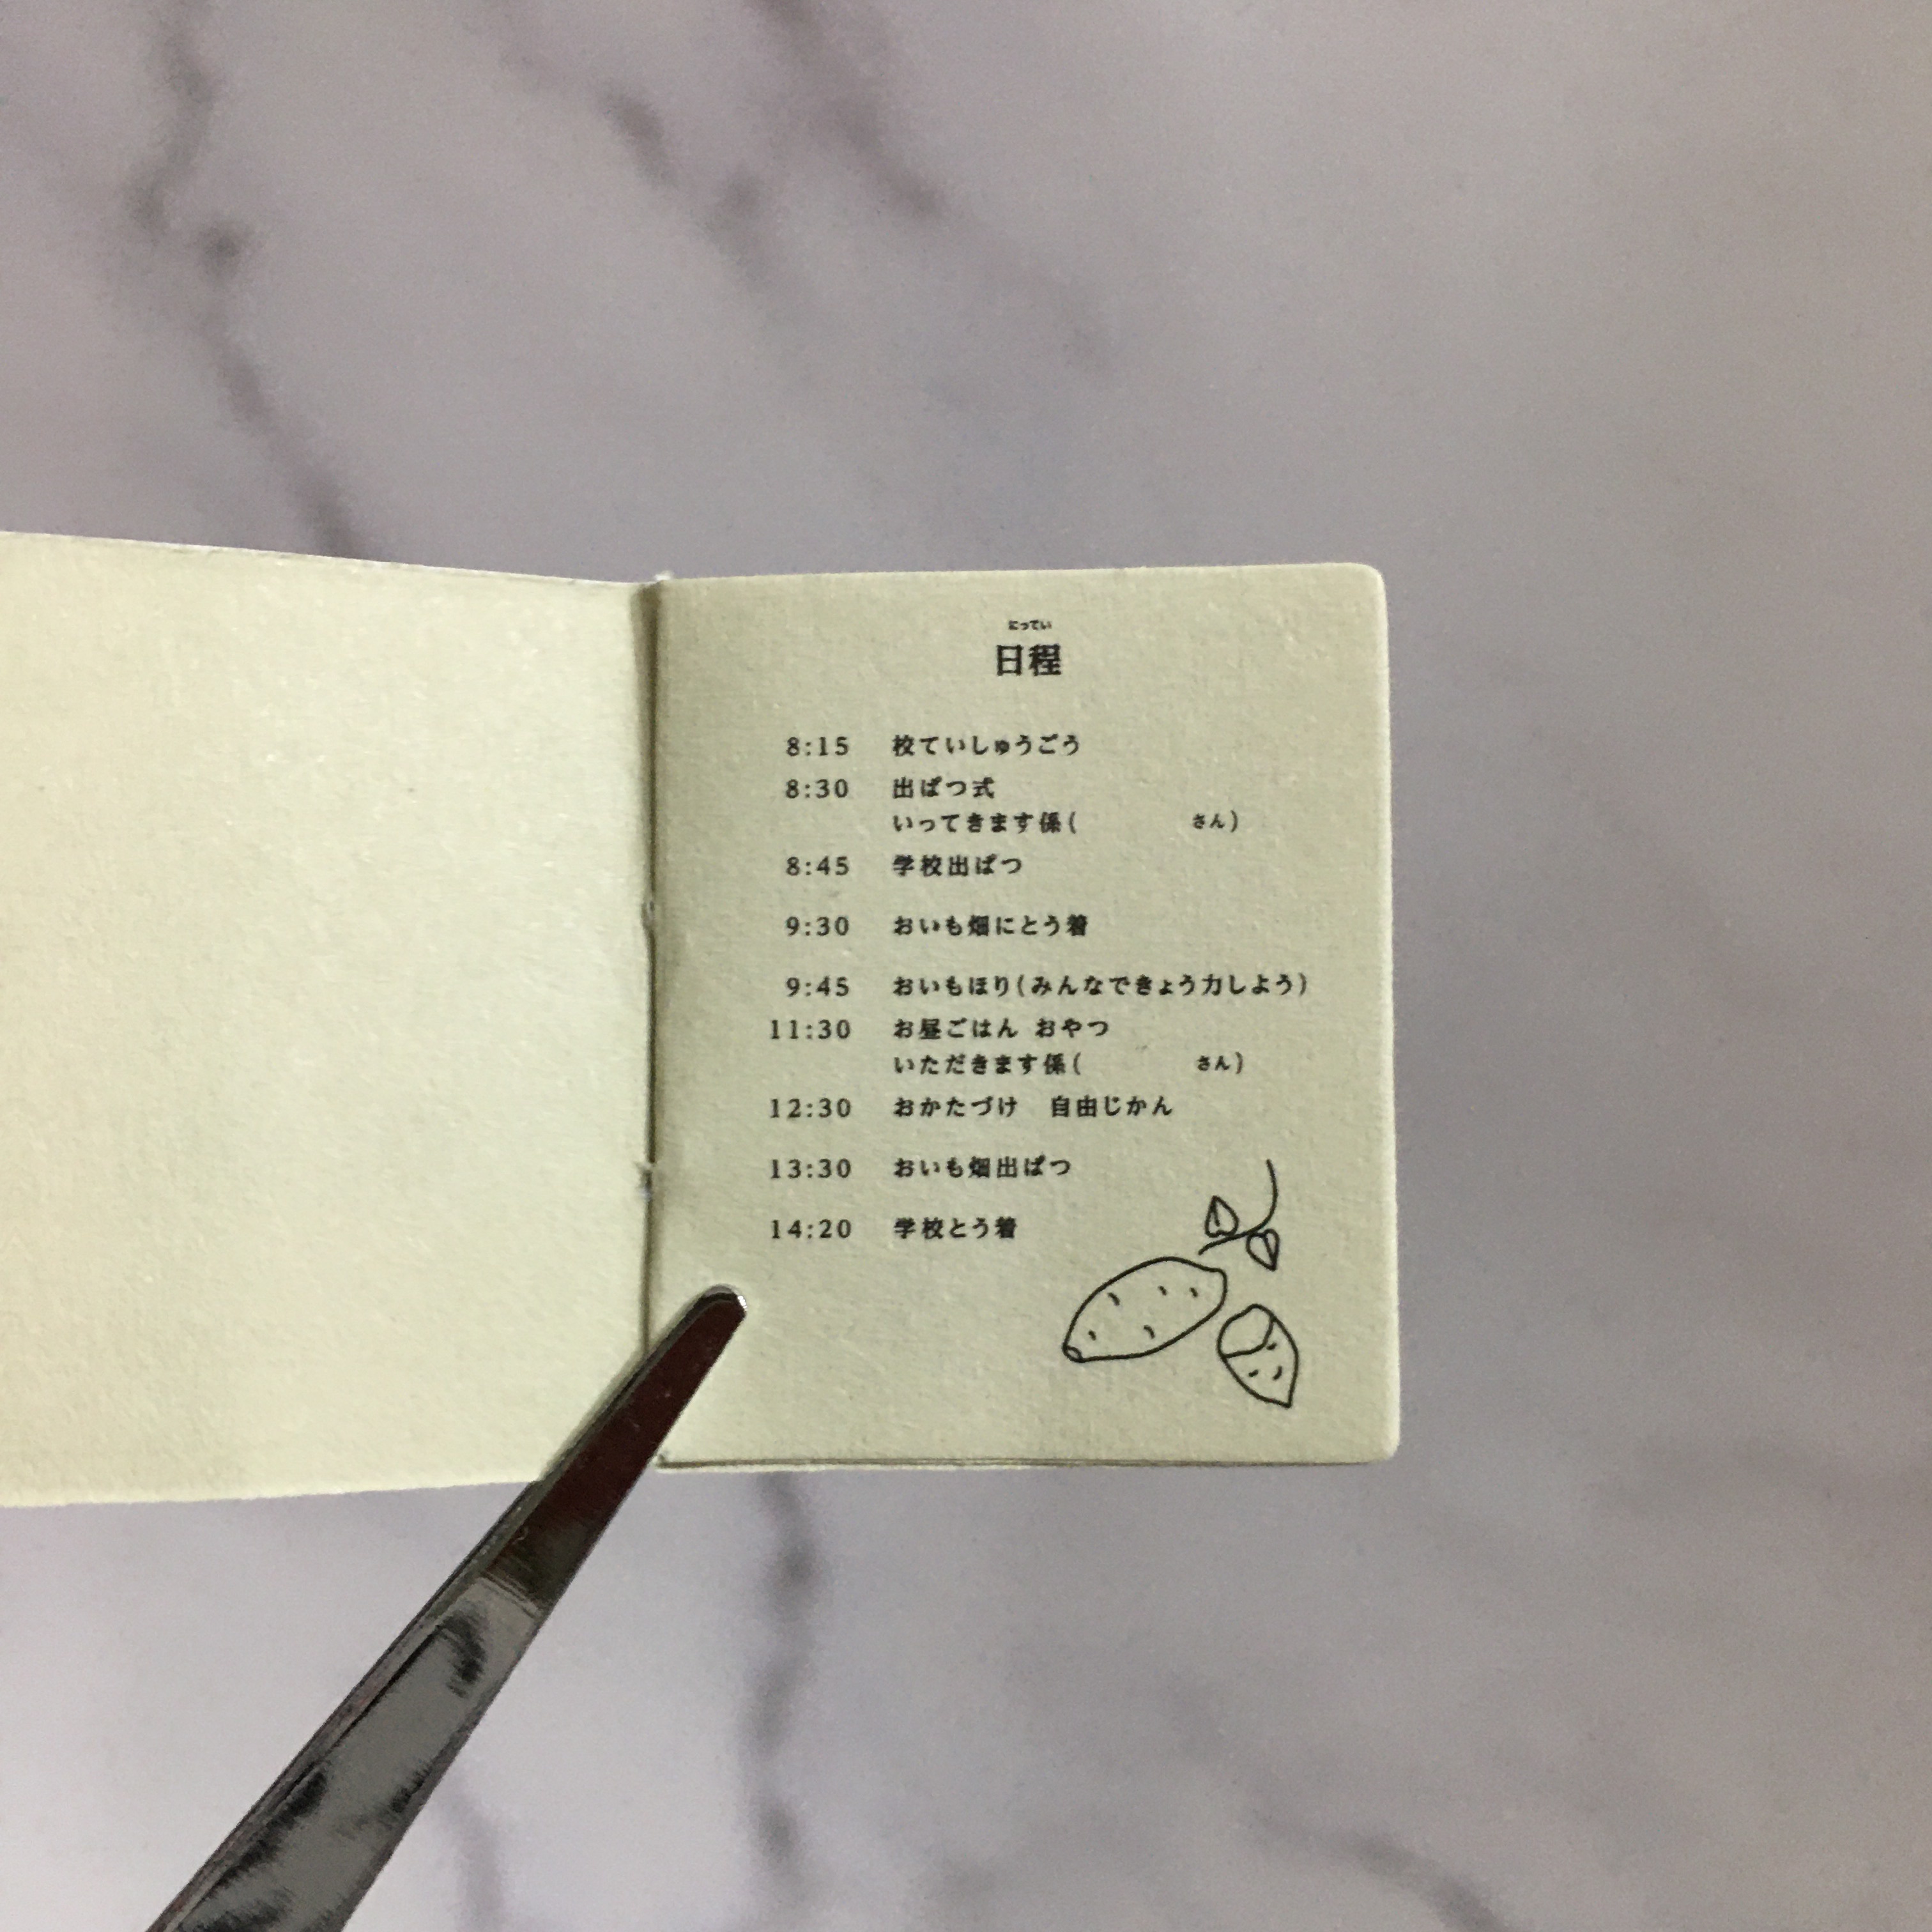 にってい
日程
8:15 校ていしゅうごう
8:30 出ぱつ式
いってきます係( さん)
8:45 学校出ぱつ
9:30 おいも畑にとう着
9:45 おいもほり(みんなできょう力しよう)
11:30 お昼ごはん おやつ
いただきます係( さん)
12:30 おかたづけ 自由じかん
13:30 おいも畑出ぱつ
14:20 学校とう着